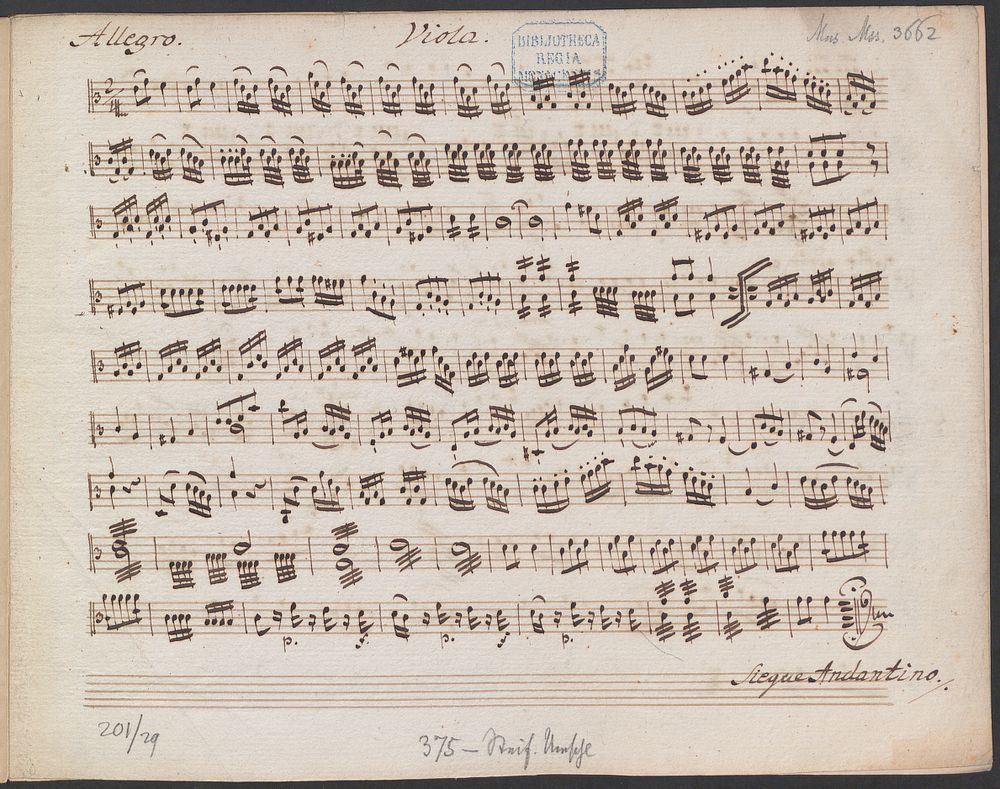 Allegro. Viola. Mus. Mss. 3662
BIBLIOTHECA
REGIA
MONACENSIS
p. p. p.
Segue Andantino.
201/29
375 - Steif. Umschl